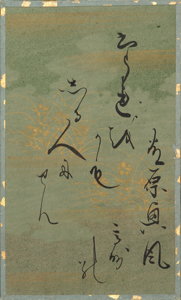 藤原興風
たれをかも
しる人に
せん
高砂
の